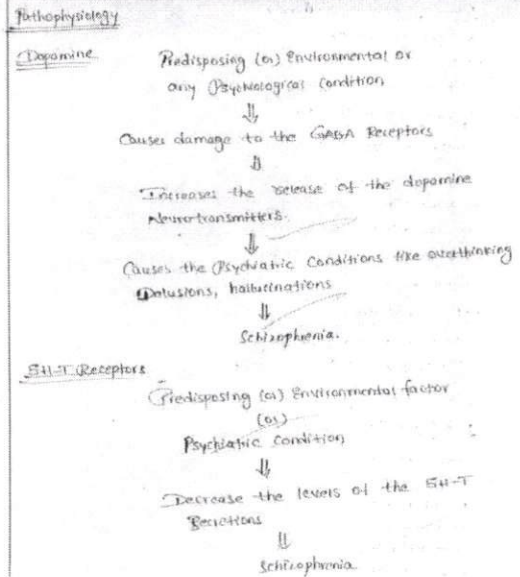 Pathophysiology
Dopamine
Predisposing (or) Environmental or
any Psychological Condition
⇓
Causes damage to the GABA Receptors
⇓
Increases the release of the dopamine
Neurotransmitters.
⇓
Causes the Psychiatric Conditions like overthinking
Delusions, hallucinations
⇓
Schizophrenia.
5H-T Receptors
Predisposing (or) Environmental factor
(or)
Psychiatric Condition
⇓
Decrease the levels of the 5H-T
Secretions
⇓
Schizophrenia